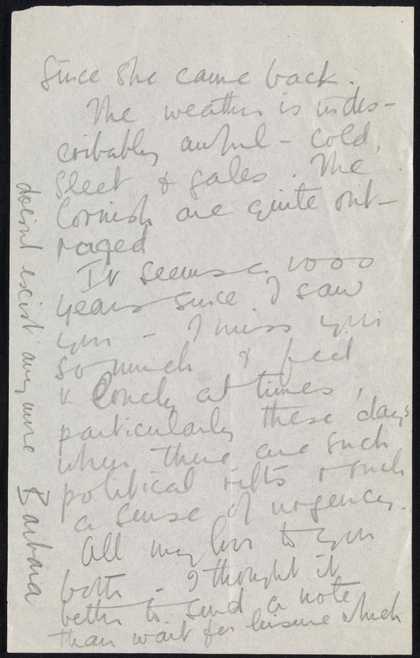 Since she came back.
The weather is indes-
cribably awful - cold,
sleet & gales. The
Cornish are quite out-
raged
It seems a 1000
years since I saw
you - I miss you
so much & feel
v lonely at times,
particularly these days
when there are such
political rifts & such
a sense of urgency.
All my love to you
both - I thought it
better to send a note
than wait for leisure which
doesn't exist any more
Barbara